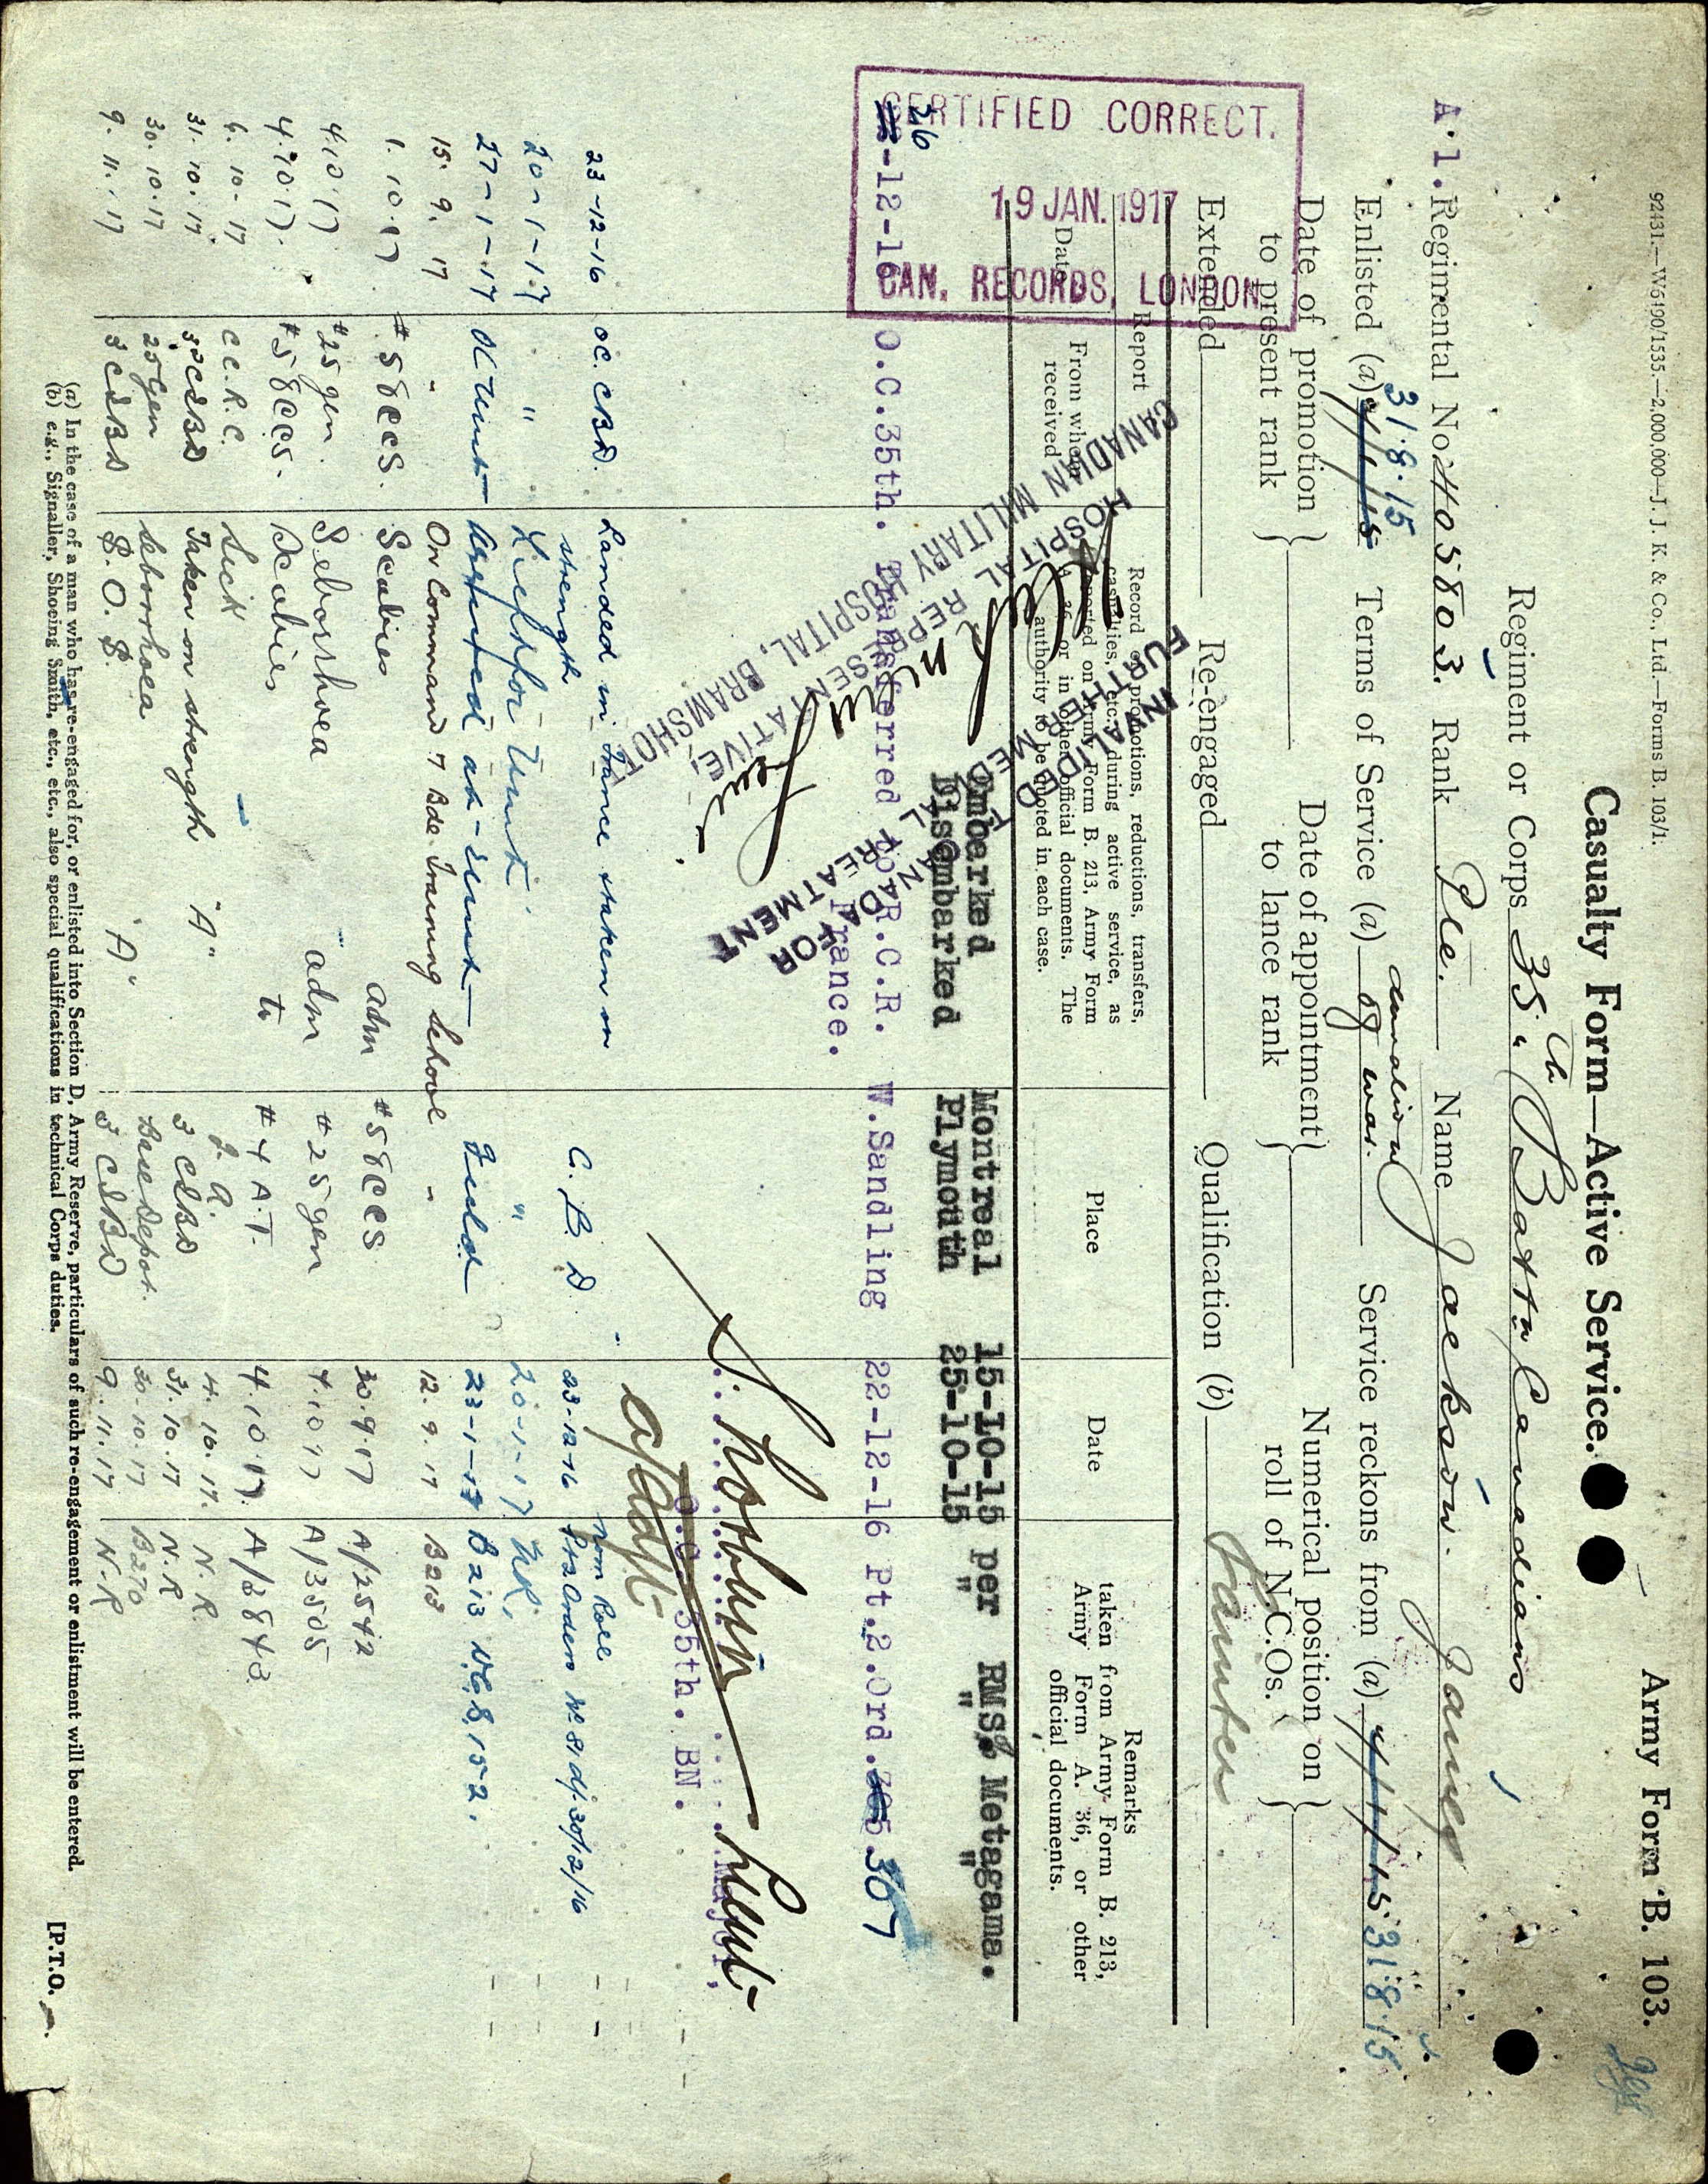 92431.—W5190/1535.—2,000,000—J. J. K. & Co., Ltd.—Forms B. 103/1.
Army Form B. 103.
Casualty Form—Active Service.
Regiment or Corps 35th Battn Canadians
A.1. Regimental No. 405803. Rank Pte. Name Jackson. James
Enlisted (a) 31·8·15 Terms of Service (a) duration of war. Service reckons from (a) 31·8·15
Date of promotion to present rank
Date of appointment to lance rank
Numerical position on roll of N.C.Os.
Extended Re-engaged Qualification (b)
CERTIFIED CORRECT.
19 JAN. 1917
CAN. RECORDS, LONDON
Report
Date
From whom received
Record of promotions, reductions, transfers, casualties, etc., during active service, as reported on Army Form B. 213, Army Form A. 36, or in other official documents. The authority to be quoted in each case.
Place
Date
Remarks taken from Army Form B. 213, Army Form A. 36, or other official documents.
INVALIDED TO CANADA FOR
FURTHER MEDICAL TREATMENT
HOSPITAL REPRESENTATIVE,
CANADIAN MILITARY HOSPITAL, BRAMSHOTT
Embarked Montreal 15-10-15 per RMS. Metagama.
Disembarked Plymouth 25-10-15 " " "
26-12-16 O.C.35th. Transferred to R.C.R. France. W.Sandling 22-12-16 Pt.2.Ord. 367
Major,
O.C. 35th. BN.
a/adjt
23-12-16 OC. CBD. Landed in France & taken on strength C. B. D. 23-12-16 Nom Roll Pt 2 Orders No 81 d/ 30/12/16
20-1-17 " Left for Unit " 20-1-17 NR.
27-1-17 OC Unit Field 23-1-17 B213
15. 9. 17 - On Command 7 Bde. Training School - 12. 9. 17 B213
1. 10. 17 #58CCS. Scabies adm #58CCS 30.9.17 A/2542
4.10.17 #25 gen. Seborrhoea adm #25 gen 4.10.17 A/3505
4.10.17. #58CCS. Scabies to #4 A.T. 4.10.17. A/3843
6. 10. 17 Sick 4. 10. 17. N.R.
31. 10. 17 Taken on strength "A" 3 CIBD 31.10.17 N.R
30. 10. 17 25 Gen Seborrhoea Base Depot. 30.10.17 B270
9. 11. 17 3 CIBD "A" 3 CIBD 9.11.17 N.R
(a) In the case of a man who has re-engaged for, or enlisted into Section D, Army Reserve, particulars of such re-engagement or enlistment will be entered.
(b) e.g., Signaller, Shoeing Smith, etc., etc., also special qualifications in technical Corps duties.
[P.T.O.